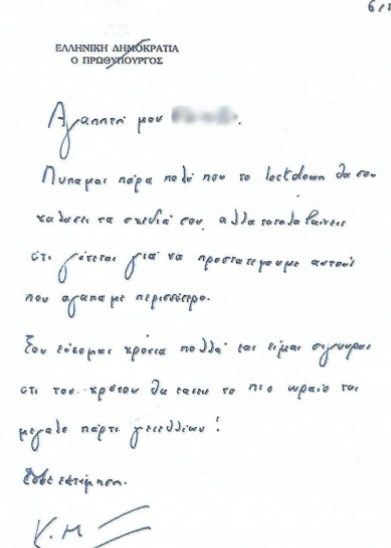 6/1
ΕΛΛΗΝΙΚΗ ΔΗΜΟΚΡΑΤΙΑ
Ο ΠΡΩΘΥΠΟΥΡΓΟΣ
Αγαπητή μου .
Λυπάμαι πάρα πολύ που το lockdown θα σου
χαλάσει τα σχέδιά σου, αλλά καταλαβαίνεις
ότι γίνεται για να προστατέψουμε αυτούς
που αγαπάμε περισσότερο.
Σου εύχομαι χρόνια πολλά και είμαι σίγουρος
ότι του χρόνου θα κάνεις το πιο ωραίο και
μεγάλο πάρτι γενεθλίων!
Με εκτίμηση,
Κ.Μ